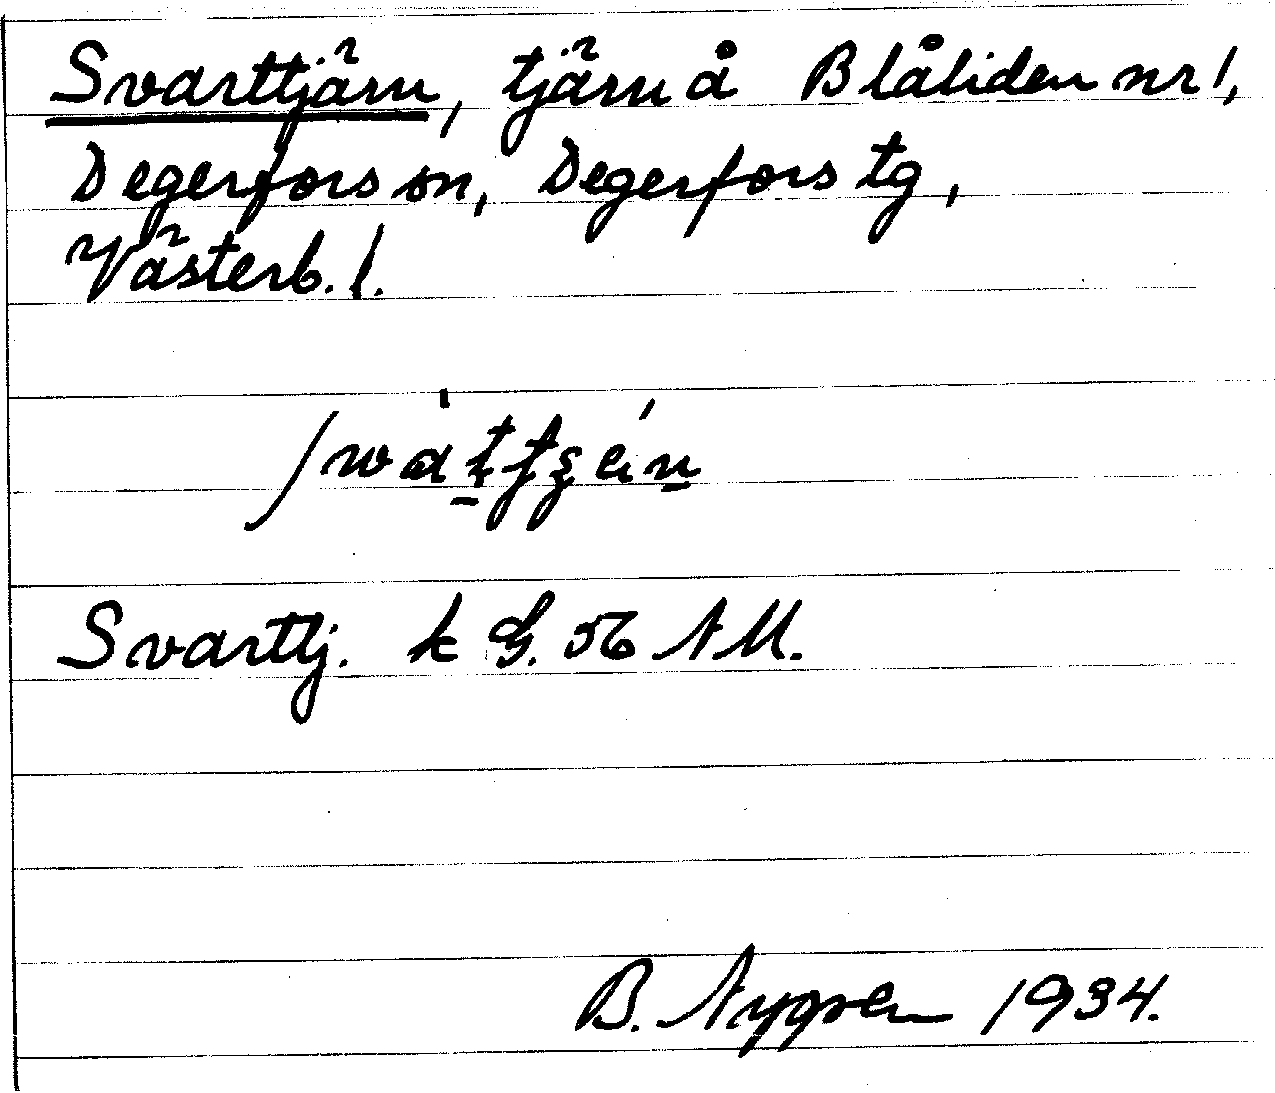 Svarttjärn, tjärn å Blåliden nr 1,
Degerfors sn, Degerfors tg,
Västerb. l.
Svarttj. k G. 56 NM.
B. Nygren 1934.